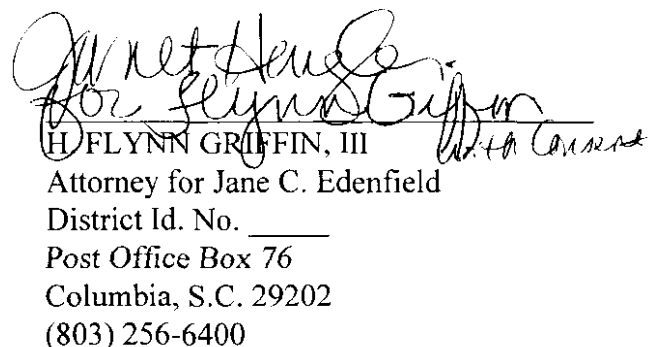 for Flynn Griffin
with Consent
H. FLYNN GRIFFIN, III
Attorney for Jane C. Edenfield
District Id. No. ______
Post Office Box 76
Columbia, S.C. 29202
(803) 256-6400